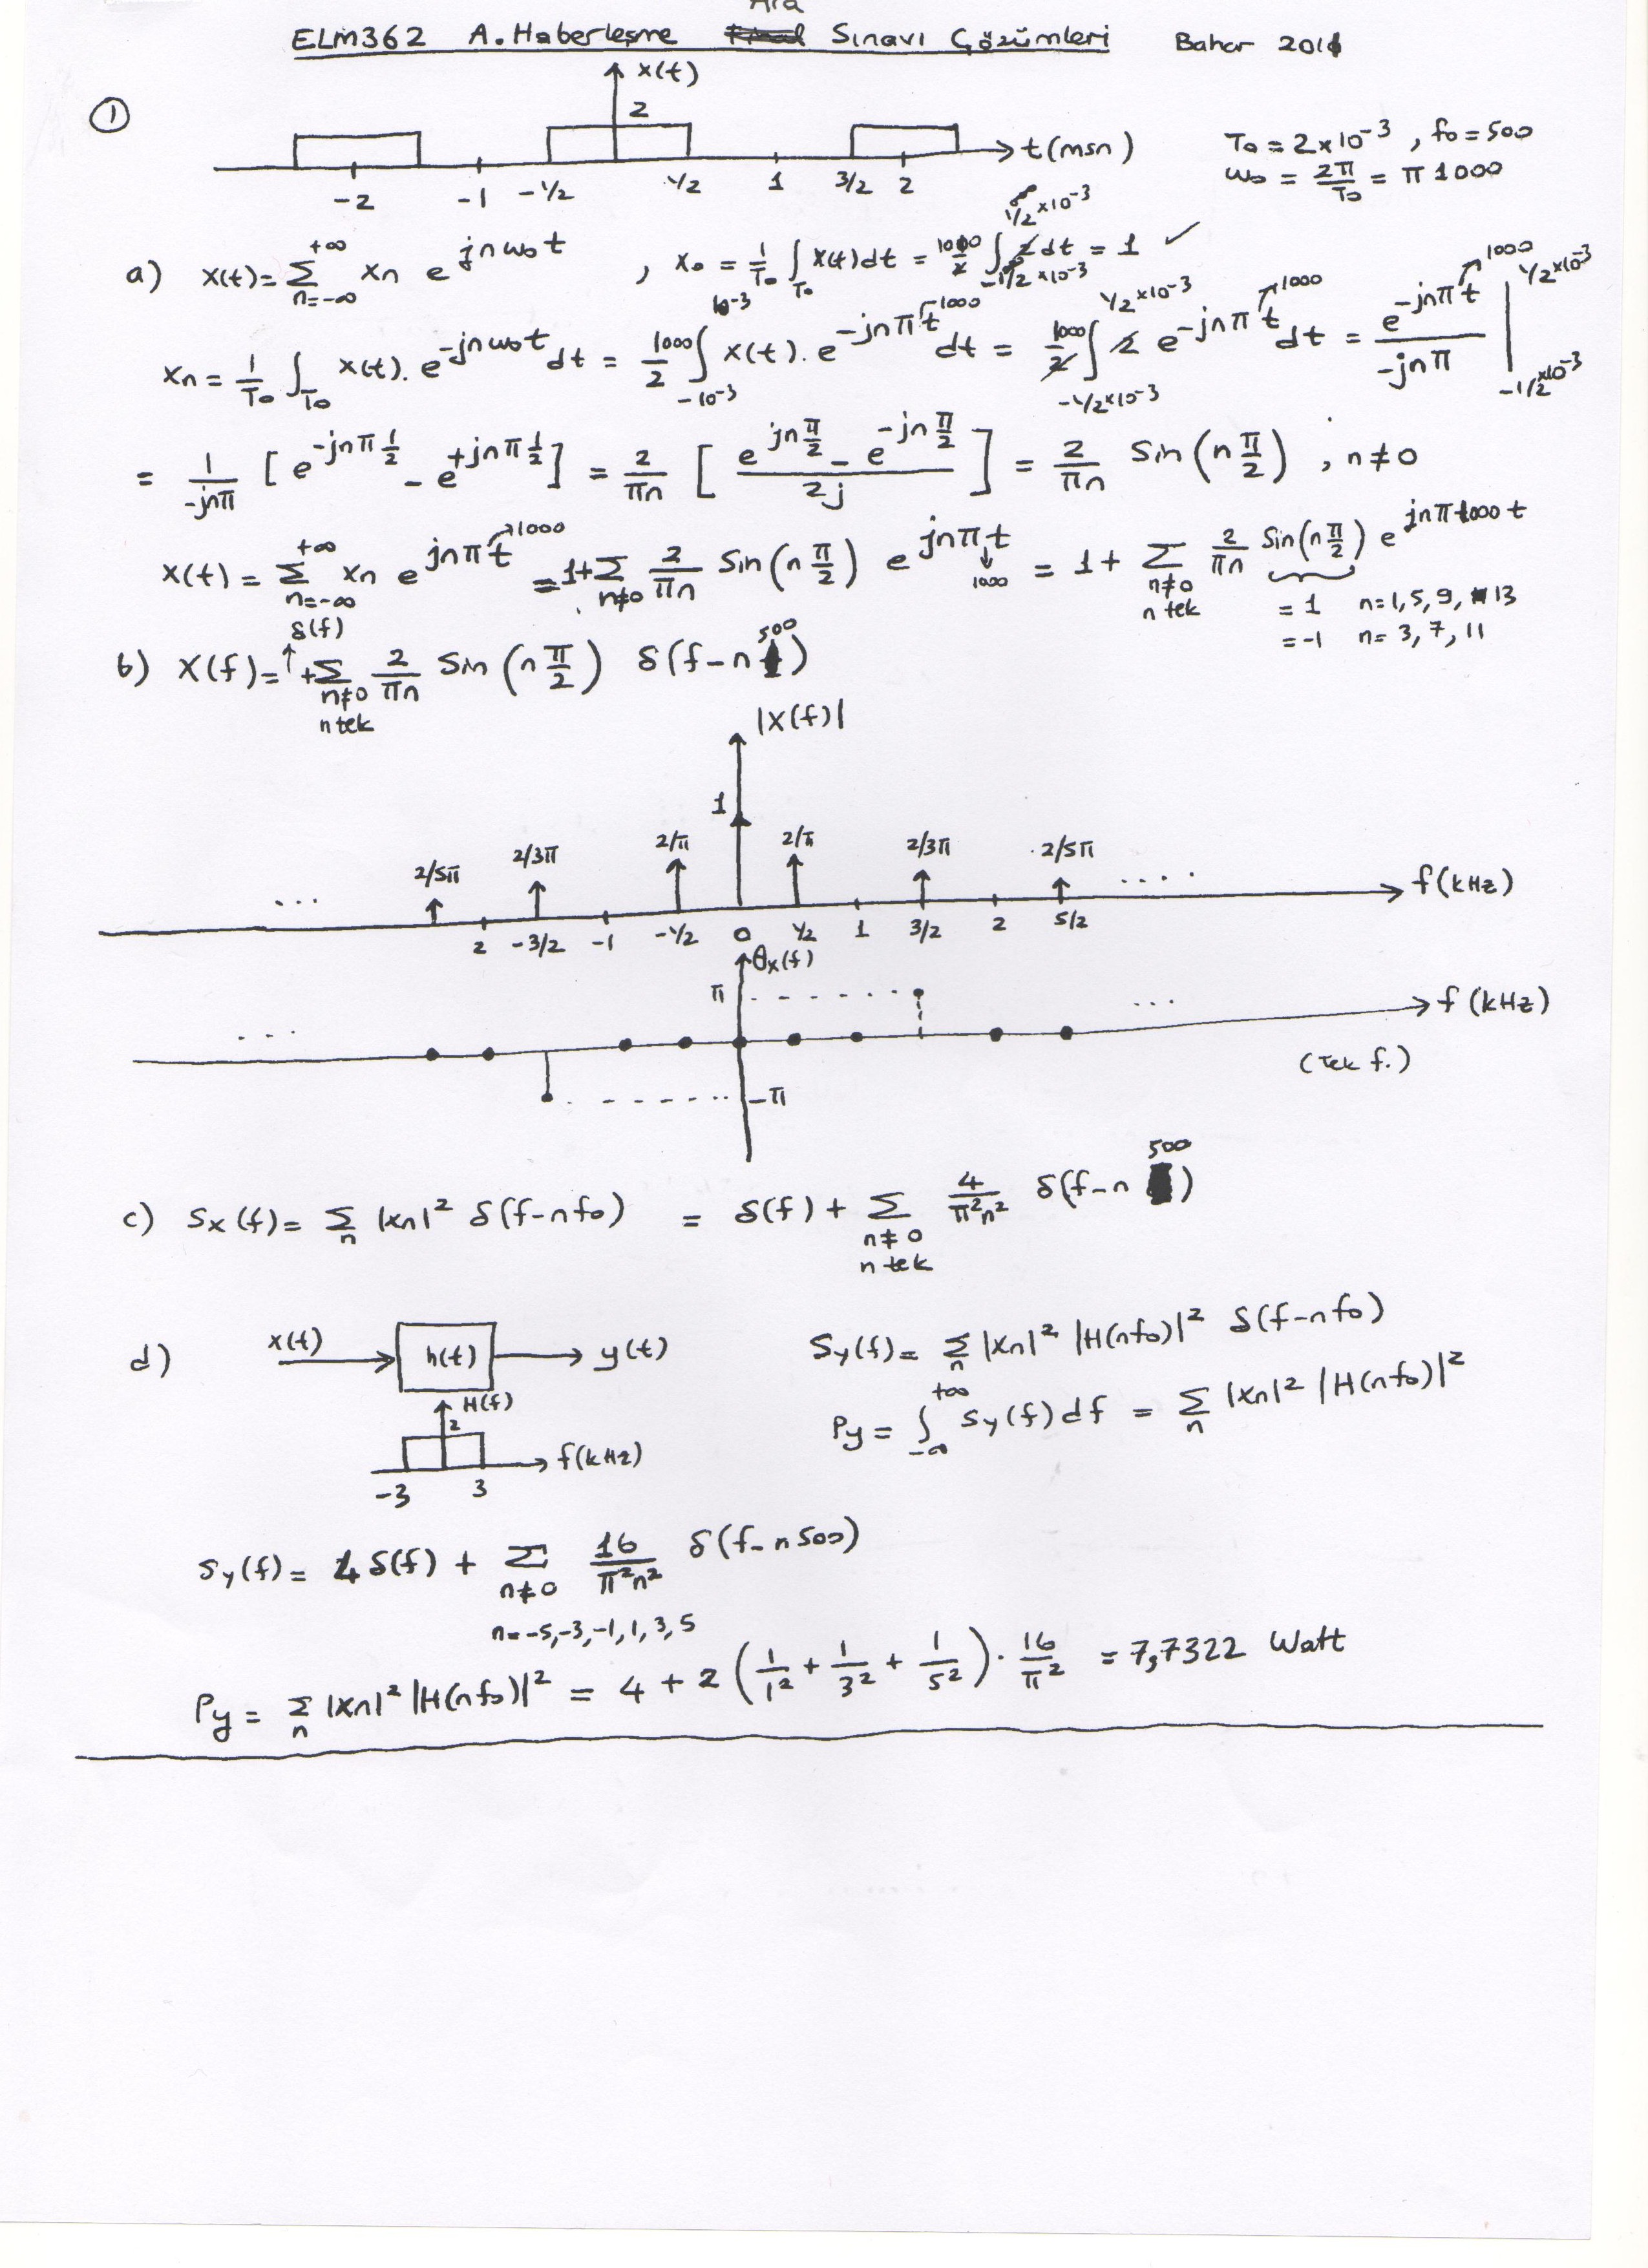 Ara
ELM362 A. Haberleşme Sınavı Çözümleri Bahar 2011
① x(t)
2
-2 -1 -1/2 1/2 1 3/2 2 t(msn)
T₀ = 2×10⁻³, f₀ = 500
ω₀ = 2π/T₀ = π 1000
a) x(t) = Σ_{n=-∞}^{+∞} xn e^{jnω₀t} , x₀ = 1/T₀ ∫_{T₀} x(t) dt = 1000/2 ∫_{-1/2×10⁻³}^{1/2×10⁻³} 2 dt = 1 ✓
xn = 1/T₀ ∫_{T₀} x(t). e^{-jnω₀t} dt = 1000/2 ∫_{-10⁻³}^{10⁻³} x(t). e^{-jnπ1000t} dt = 1000/2 ∫_{-1/2×10⁻³}^{1/2×10⁻³} 2 e^{-jnπ1000t} dt = e^{-jnπ1000t}/(-jnπ) |_{-1/2×10⁻³}^{1/2×10⁻³}
= 1/(-jnπ) [e^{-jnπ1/2} - e^{+jnπ1/2}] = 2/(πn) [(e^{jnπ/2} - e^{-jnπ/2})/2j] = 2/(πn) Sin(nπ/2) , n≠0
x(t) = Σ_{n=-∞}^{+∞} xn e^{jnπ1000t} = 1+Σ_{n≠0} 2/(πn) Sin(nπ/2) e^{jnπ1000t} = 1 + Σ_{n≠0, n tek} 2/(πn) Sin(nπ/2) e^{jnπ1000t}
= 1 n=1,5,9,13
= -1 n=3,7,11
b) X(f) = δ(f) + Σ_{n≠0, n tek} 2/(πn) Sin(nπ/2) δ(f-n500)
|X(f)|
1
2/5π 2/3π 2/π 2/π 2/3π 2/5π
... .... f(kHz)
2 -3/2 -1 -1/2 0 1/2 1 3/2 2 5/2
θx(f)
π
... ... f(kHz)
(Tek f.)
-π
c) Sx(f) = Σ_n |xn|² δ(f-nf₀) = δ(f) + Σ_{n≠0, n tek} 4/(π²n²) δ(f-n500)
d) x(t) h(t) y(t)
H(f)
2
f(kHz)
-3 3
Sy(f) = Σ_n |xn|² |H(nf₀)|² δ(f-nf₀)
Py = ∫_{-∞}^{+∞} Sy(f) df = Σ_n |xn|² |H(nf₀)|²
Sy(f) = 4 δ(f) + Σ_{n≠0} 16/(π²n²) δ(f-n500)
n=-5,-3,-1,1,3,5
Py = Σ_n |xn|² |H(nf₀)|² = 4 + 2 (1/1² + 1/3² + 1/5²) . 16/π² = 7,7322 Watt